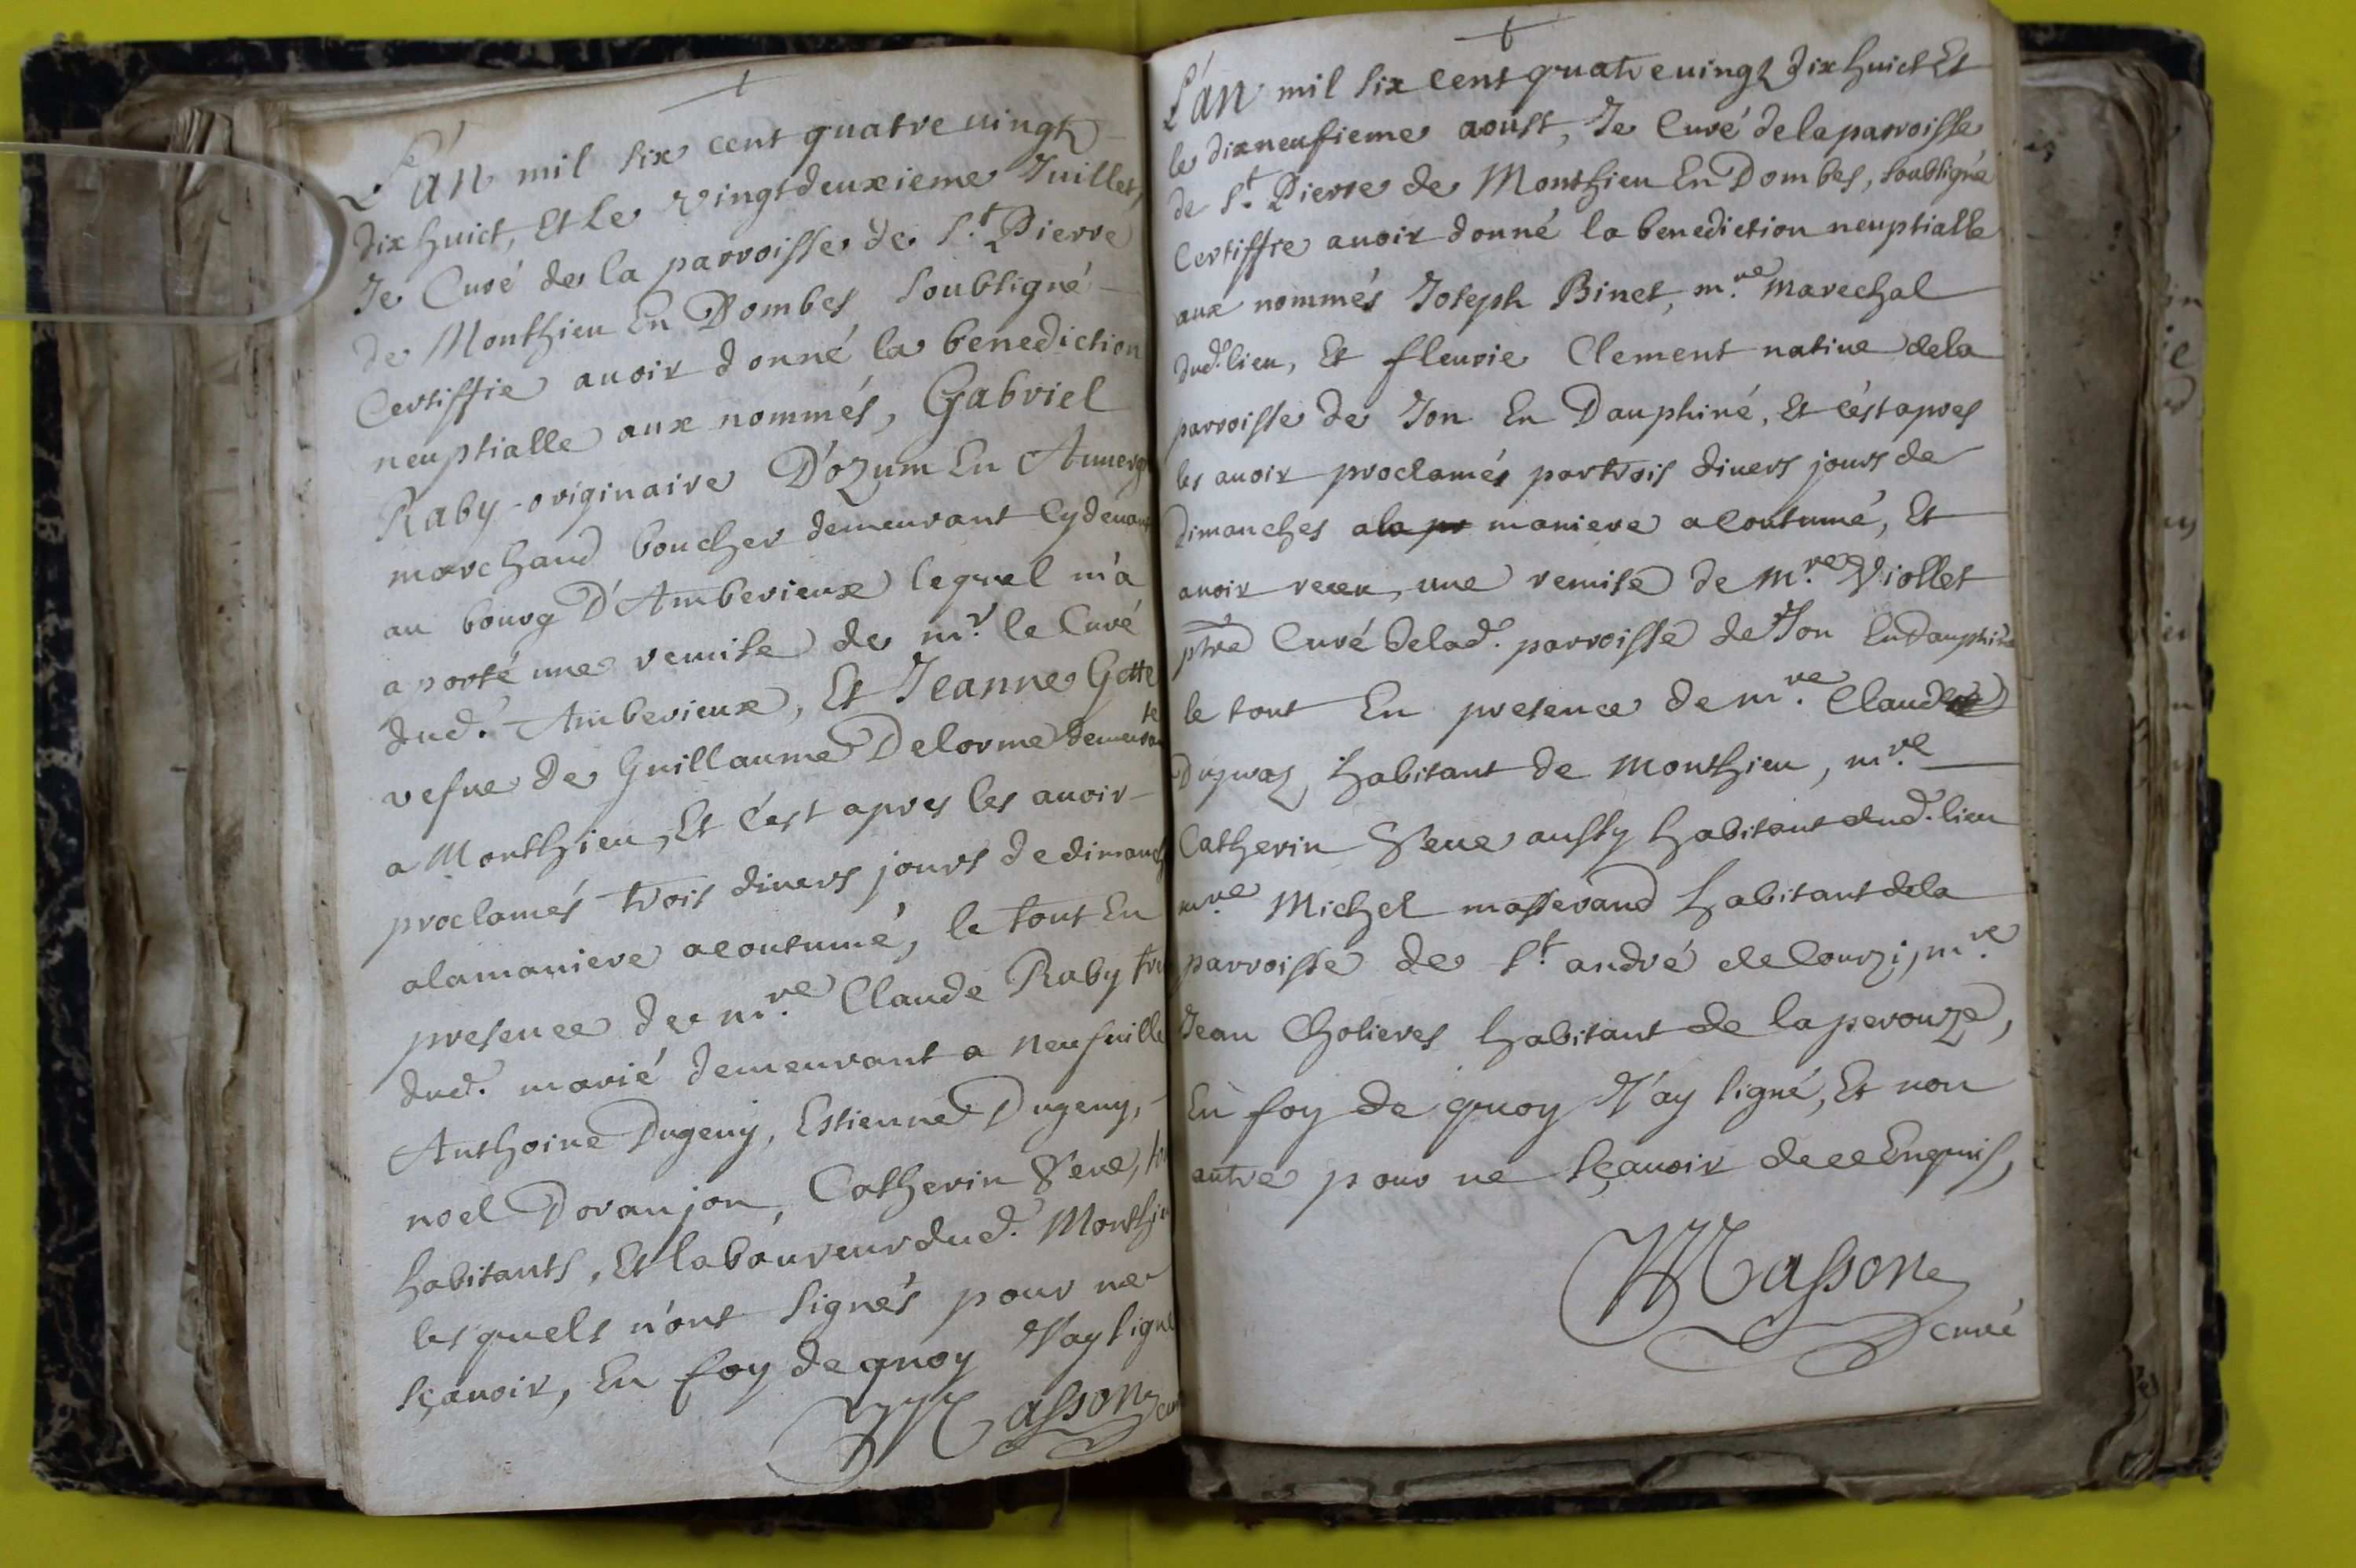 L'an mil six cent quatre uingt
dix huict, Et le vingt deuxieme Juillet,
Je Curé de la parroisse de St. Pierre
de Monthieu En Dombes soubsigné
Certiffie auoir donné la benediction
neuptialle aux nommés, Gabriel
Raby originaire D'ozum En
marchand boucher demeurant Cydeuant
au bourg D'Amberieux lequel m'a
aporté une remise de mr. le Curé
dud. Amberieux, Et Jeanne Gotte
vefue de Guillaume Delorme
a Monthieu, Et c'est apres les auoir
proclamés trois diuers jours de
a la maniere acoutumé, le tout En
presence de mre. Claude Raby
dud. marié demeurant a neufuille
Anthoine Dugeny, Estienne Dugeny,
noel Doranjon, Catherin Seue,
habitants, Et laboureur dud.
lesquels n'ont signés pour ne
sçauoir, En foy de quoy J'ay signé
Masson
L'an mil six cent quatre uingt dix huict Et
le dixneufieme aoust, Je Curé de la parroisse
de St. Pierre de Monthieu En Dombes, soubsigné
Certiffie auoir donné la benediction neuptialle
aux nommés Joseph Binet, mre. marechal
dud. lieu, Et fleurie Clement natiue dela
parroisse de Jon En Dauphiné, Et c'est apres
les auoir proclamés par trois diuers jours de
dimanches a la maniere acoutumé, Et
auoir receu, une remise de mre. Viollet
ptre Curé delad. parroisse de Jon En Dauphiné
le tout En presence de mre. Claude
habitant de monthieu, mre.
Catherin Seue aussy habitant dud. lieu
mre Michel masserand habitant dela
parroisse de St andré de Courzi, mre.
Jean Cholieres habitant de la perouze,
En foy de quoy J'ay signé, Et non
autre pour ne sçauoir de ce Enquis,
Masson
curé